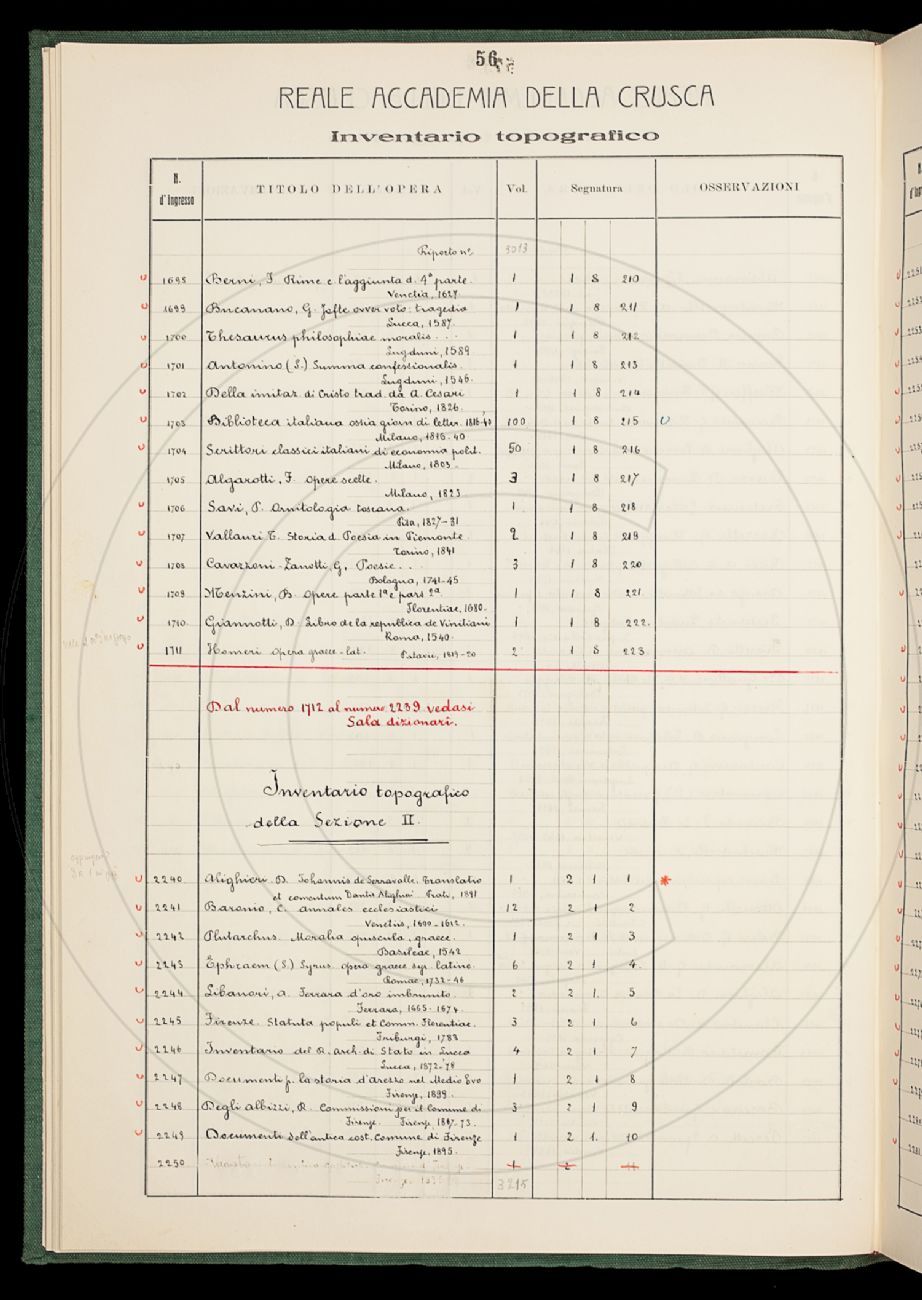 56
REALE ACCADEMIA DELLA CRUSCA
Inventario topografico
N. d'Ingresso TITOLO DELL'OPERA Vol. Segnatura OSSERVAZIONI
Riporto nº 3013
1698 Berni, F. Rime e l'aggiunta d. 4ª parte. 1 1 8 210
Venetia, 1627.
1699 Bucanano, G. Jefte ovver voto: tragedia 1 1 8 211
Lucca, 1587.
1700 Thesaurus philosophiae moralis . . . 1 1 8 212
Lugduni, 1589
1701 Antonino (S.) Summa confessionalis. 1 1 8 213
Lugduni, 1546.
1702 Della imitaz. di Cristo trad. da A. Cesari 1 1 8 214
Torino, 1826.
1703 Biblioteca italiana ossia giorn. di letter. 1816-40 100 1 8 215
Milano, 1816-40
1704 Scrittori classici italiani di economia polit. 50 1 8 216
Milano, 1803.
1705 Algarotti, F. Opere scelte. 3 1 8 217
Milano, 1823.
1706 Savi, P. Ornitologia toscana. 1 1 8 218
Pisa, 1827-31
1707 Vallauri T. Storia d. Poesia in Piemonte. 2 1 8 219
Torino, 1841
1708 Cavazzoni-Zanotti, G. Poesie . . . 3 1 8 220
Bologna, 1741-45
1709 Menzini, B. Opere parte 1ª e pars 2ª. 1 1 8 221.
Florentiae, 1680.
1710 Giannotti, D. Libro de la republica de Vinitiani 1 1 8 222.
Roma, 1540.
1711 Homeri Opera graece-lat. Patavii, 1819-20 2 1 8 223
Dal numero 1712 al numero 2239 vedasi
Sala dizionari.
Inventario topografico
della Sezione II.
2240 Alighieri D. Johannis de Serravalle. Translatio 1 2 1 1 *
et comentum Dantis Aligherii Prati, 1891
2241 Baronio, C. Annales ecclesiastici 12 2 1 2
Venetiis, 1600-1612.
2242 Plutarchus. Moralia opuscula, graece. 1 2 1 3
Basileae, 1542
2243 Ephraem (S.) Syrus. Opera graece syr. latine. 6 2 1 4.
Romae, 1732-46
2244 Libanori, A. Ferrara d'oro imbrunito. 2 2 1. 5
Ferrara, 1665-1674.
2245 Firenze. Statuta populi et Comm. Florentiae. 3 2 1 6
Friburgi, 1783
2246 Inventario del R. Arch. di Stato in Lucca 4 2 1 7
Lucca, 1872-78
2247 Documenti p. la storia d'Arezzo nel Medio Evo 1 2 1 8
Firenze, 1899.
2248 Degli Albizzi, R. Commissioni per il Comune di 3 2 1 9
Firenze. Firenze, 1867-73.
2249 Documenti dell'antica cost. Comune di Firenze 1 2 1. 10
Firenze, 1895.
2250 1 2 11
3215